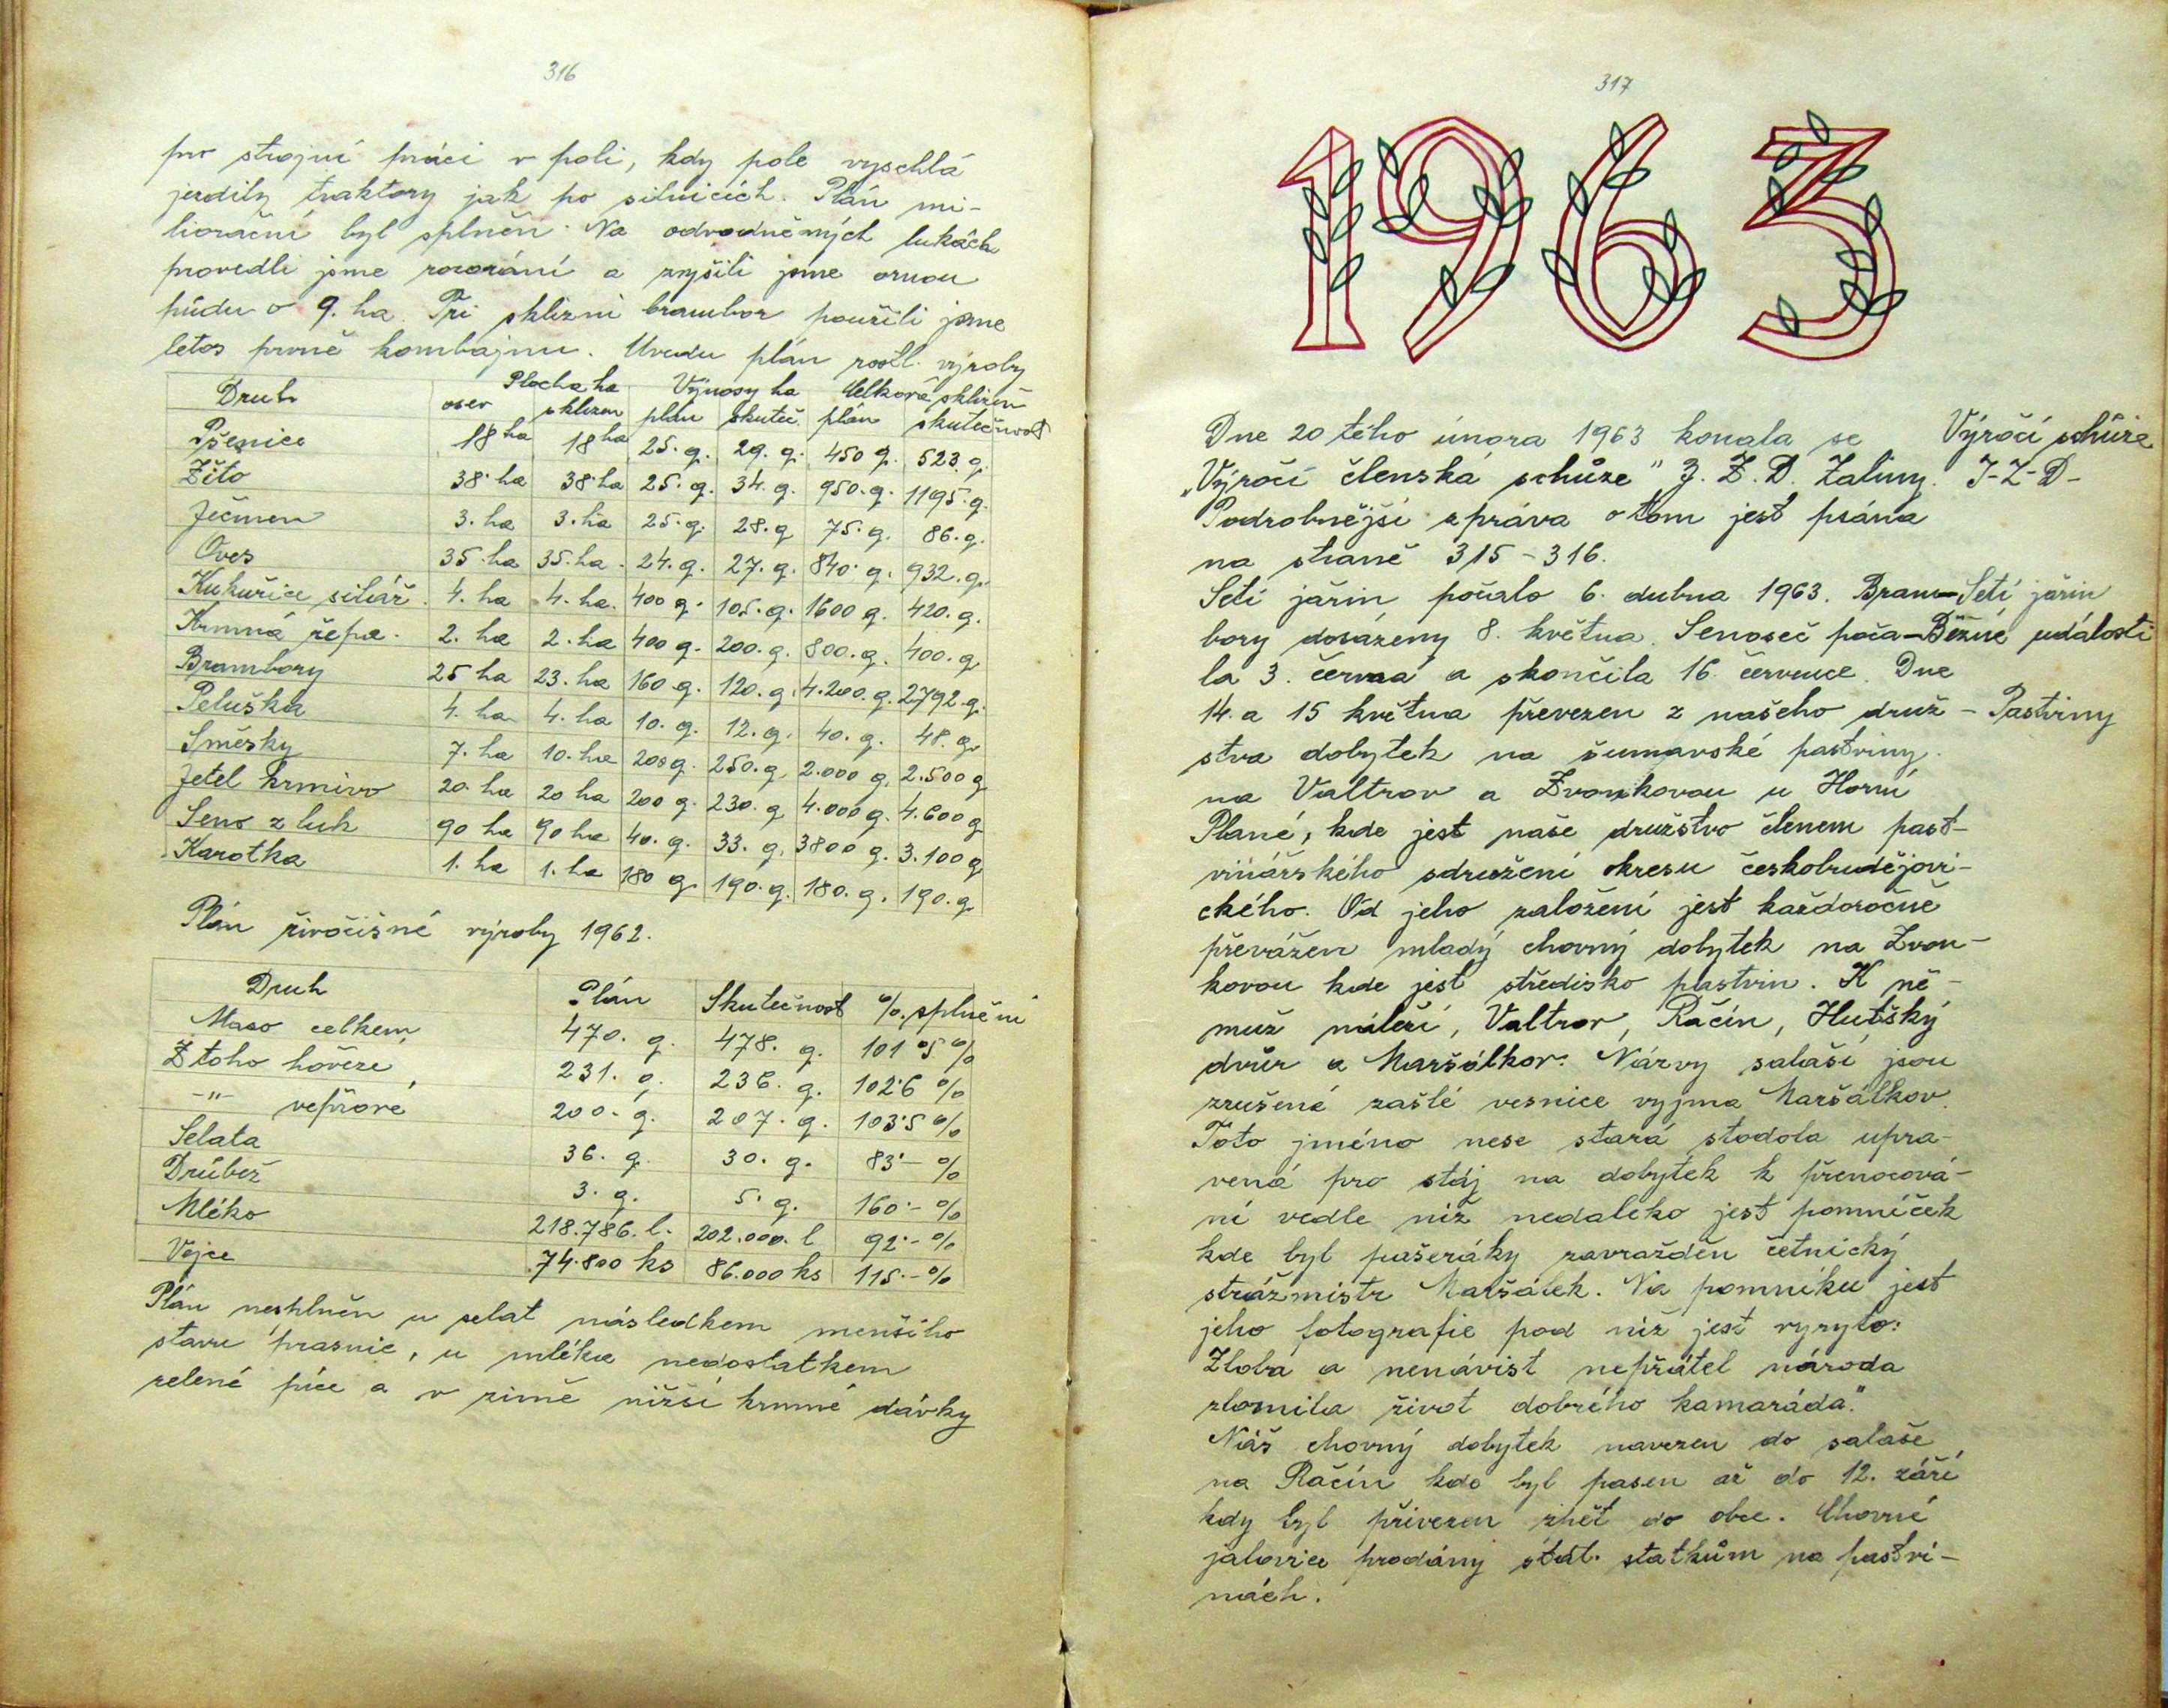 316
pro strojní práci v poli, kdy pole vyschlá
jezdily traktory jak po silnicích. Plán mi-
liorační byl splněn. Na odvodněných lukách
provedli jsme rozorání a zvýšili jsme ornou
půdu o 9. ha. Při sklizni brambor použili jsme
letos prvně kombajnu. Uvedu plán rostl. výroby
Druh Plocha ha Výnosy ha Celková sklizeň
osev sklizen plán skuteč. plán skutečnost
Pšenice 18 ha 18 ha 25. q. 29. q. 450 q. 523. q.
Žito 38. ha 38. ha 25. q. 34. q. 950. q. 1195. q.
Ječmen 3. ha 3. ha 25. q. 28. q 75. q. 86. q.
Oves 35. ha 35. ha. 24. q. 27. q. 840. q. 932. q.
Kukuřice siláž. 4. ha 4. ha. 400 q. 105. q. 1600 q. 420. q.
Krmná řepa. 2. ha 2. ha 400 q. 200. q. 800. q. 400. q.
Brambory 25 ha 23. ha 160 q. 120. q. 4.200. q. 2792. q.
Peluška 4. ha 4. ha 10. q. 12. q. 40. q. 48. q.
Směsky 7. ha 10. ha 200 q. 250. q. 2.000 q. 2.500 q
Jetel krmivo 20. ha 20 ha 200 q. 230. q 4.000 q. 4.600 q
Seno z luk 90 ha 90 ha 40. q. 33. q. 3800 q. 3.100 q
Karotka 1. ha 1. ha 180 q. 190. q. 180. q. 190. q
Plán živočišné výroby 1962.
Druh Plán Skutečnost %. splnění
Maso celkem 470. q. 478. q. 101˙5 %
Z toho hověze 231. q. 236. q. 102˙6 %
-"- vepřové 200. q. 207. q. 103˙5 %
Selata 36. q. 30. q. 83˙- %
Drůbež 3. q. 5. q. 160˙- %
Mléko 218.786. l. 202.000. l 92˙- %
Vejce 74.800 ks 86.000 ks 115.- %
Plán nesplněn u selat následkem menšího
stavu prasnic, u mléka nedostatkem
zelené píce a v zimě nižší krmné dávky
317
1963
Dne 20 tého února 1963 konala se Výročí schůze
„Výročí členská schůze" J. Z. D. Zaliny. J-Z-D-
Podrobnější zpráva o tom jest psána
na straně 315-316.
Setí jařin počalo 6. dubna 1963. Bram- Setí jařin
bory dosázeny 8. května. Senoseč poča- Běžné události
la 3. června a skončila 16. července. Dne
14. a 15 května převezen z našeho druž- Pastviny
stva dobytek na šumavské pastviny.
na Valtrov a Zvonkovou u Horní
Plané, kde jest naše družstvo členem past-
vinářského sdružení okresu českobudějovi-
ckého. Od jeho založení jest každoročně
převážen mladý chovný dobytek na Zvon-
kovou kde jest středisko pastvin. K ně-
muž náleží, Valtrov, Račín, Hutský
dvůr a Maršálkov. Názvy salaší jsou
zrušené zašlé vesnice vyjma Maršálkov.
Toto jméno nese stará stodola upra-
vená pro stáj na dobytek k přenocová-
ní vedle níž nedaleko jest pomníček
kde byl pašeráky zavražděn četnický
strážmistr Maršálek. Na pomníku jest
jeho fotografie pod níž jest vyryto:
Zloba a nenávist nepřátel národa
zlomila život dobrého kamaráda".
Náš chovný dobytek navezen do salaše
na Račín kde byl pasen až do 12. září
kdy byl přivezen zpět do obce. Chovné
jalovice prodány stát. statkům na pastvi-
nách.